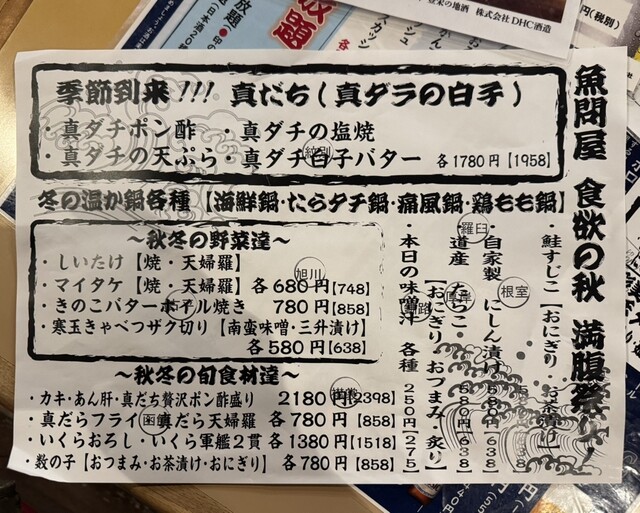 魚問屋 食欲の秋 満腹祭り!
季節到来!!! 真だち(真ダラの白子)
・真ダチポン酢 ・真ダチの塩焼
・真ダチの天ぷら・真ダチ白子バター 各1780円【1958】
冬の温か鍋各種【海鮮鍋・たらタチ鍋・痛風鍋・鶏もも鍋】
〜秋冬の野菜達〜
・しいたけ【焼・天婦羅】
・マイタケ【焼・天婦羅】各680円【748】
・きのこバターホイル焼き 780円【858】
・寒玉きゃべつザク切り【南蛮味噌・三升漬け】
各580円【638】
〜秋冬の旬食材達〜
・カキ・あん肝・真だち贅沢ポン酢盛り 2180円【2398】
・真だらフライ・真だら天婦羅 各780円【858】
・いくらおろし・いくら軍艦2貫 各1380円【1518】
・数の子【おつまみ・お茶漬け・おにぎり】各780円【858】
・鮭すじこ【おにぎり・お茶漬け】
・自家製 にしん漬け 580円【638】
・道産 たらこ【おにぎり おつまみ 炙り】580円【638】
・本日の味噌汁 各種 250円【275】
紋別
旭川
羅臼
根室
厚岸
釧路
函館
株式会社DHC酒造
円(税別)
放題